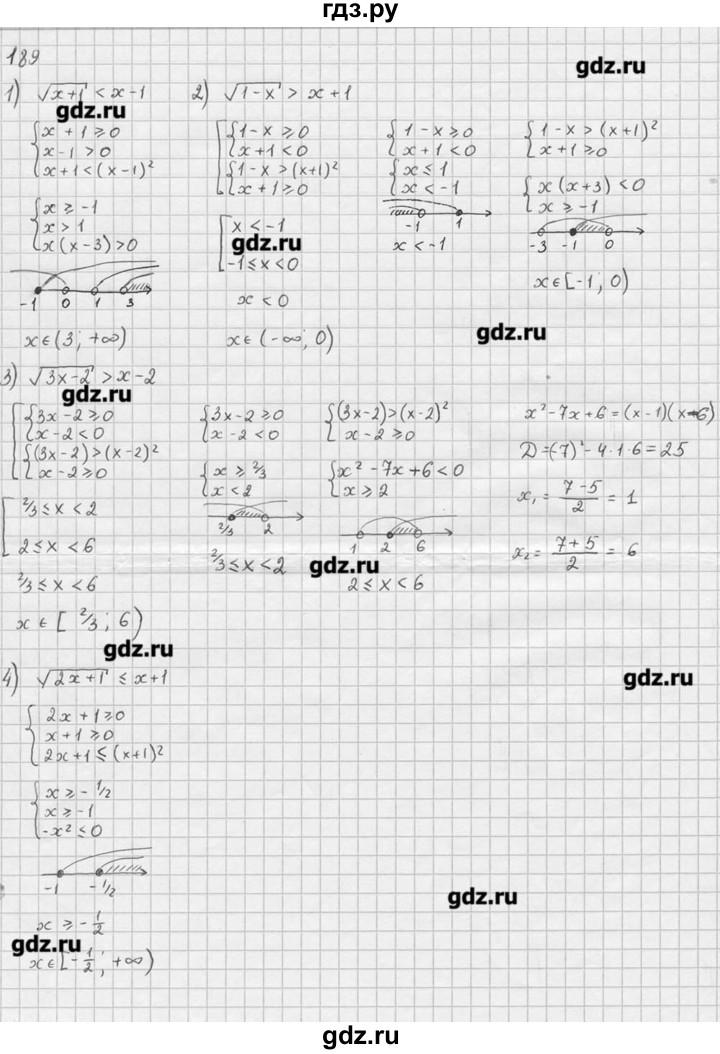 гдз.ру
189
gdz.ru
1) √(x+1) < x-1
gdz.ru
{ x+1 ≥ 0
x-1 > 0
x+1 < (x-1)²
{ x ≥ -1
x > 1
x(x-3) > 0
-1 0 1 3
x ∈ (3; +∞)
2) √(1-x) > x+1
[ { 1-x ≥ 0
x+1 < 0
{ 1-x > (x+1)²
x+1 ≥ 0
[ x < -1
gdz.ru
-1 ≤ x < 0
x < 0
x ∈ (-∞; 0)
{ 1-x ≥ 0
x+1 < 0
{ x ≤ 1
x < -1
-1 1
x < -1
{ 1-x > (x+1)²
x+1 ≥ 0
{ x(x+3) < 0
x ≥ -1
-3 -1 0
x ∈ [-1; 0)
gdz.ru
3) √(3x-2) > x-2
gdz.ru
[ { 3x-2 ≥ 0
x-2 < 0
{ (3x-2) > (x-2)²
x-2 ≥ 0
[ 2/3 ≤ x < 2
2 ≤ x < 6
2/3 ≤ x < 6
x ∈ [2/3; 6)
gdz.ru
{ 3x-2 ≥ 0
x-2 < 0
{ x ≥ 2/3
x < 2
2/3 2
2/3 ≤ x < 2
gdz.ru
{ (3x-2) > (x-2)²
x-2 ≥ 0
{ x² - 7x + 6 < 0
x ≥ 2
1 2 6
2 ≤ x < 6
x² - 7x + 6 = (x-1)(x-6)
D = (-7)² - 4·1·6 = 25
x₁ = (7-5)/2 = 1
x₂ = (7+5)/2 = 6
gdz.ru
4) √(2x+1) ≤ x+1
{ 2x+1 ≥ 0
x+1 ≥ 0
2x+1 ≤ (x+1)²
{ x ≥ -1/2
x ≥ -1
-x² ≤ 0
-1 -1/2
gdz.ru
x ≥ -1/2
gdz.ru
x ∈ [-1/2; +∞)
gdz.ru